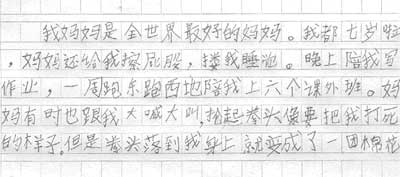 我妈妈是全世界最好的妈妈。我都七岁啦
，妈妈还给我擦屁股，搂我睡池。晚上陪我写
作业，一周跑东跑西地陪我上六个课外班。妈
妈有时也跟我大喊大叫，抡起拳头像要把我打死
的样子。但是拳头落到我身上就变成了一团棉花